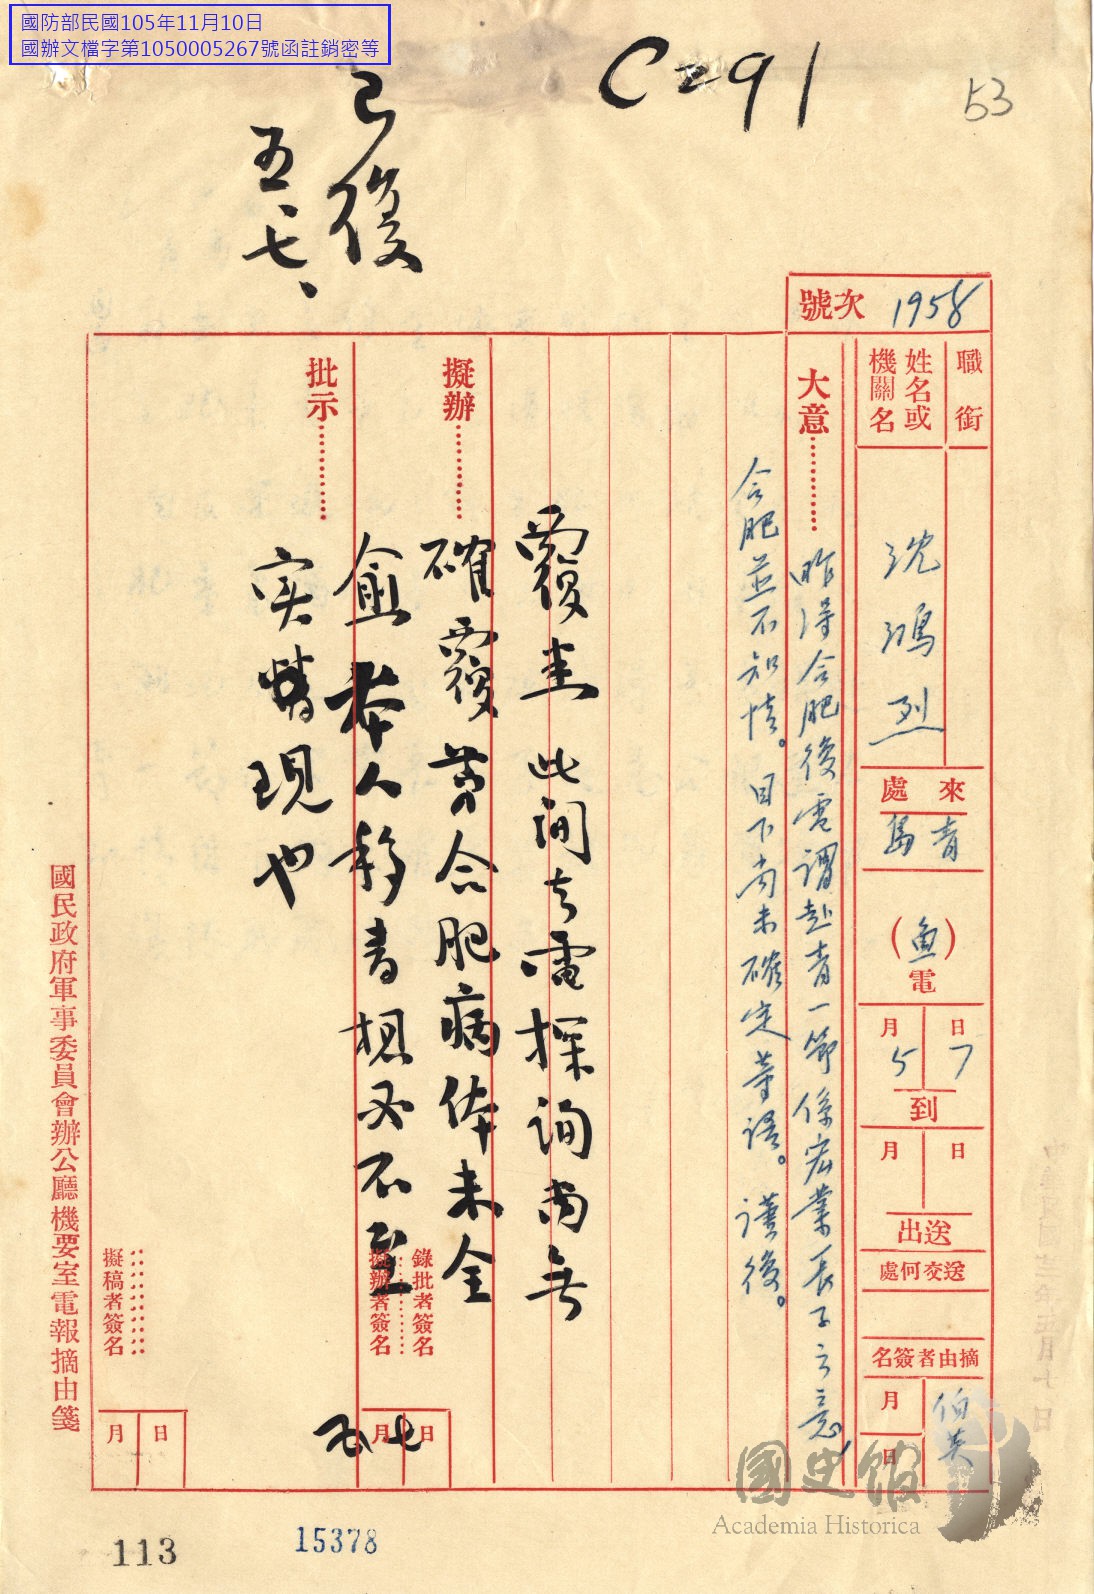 國防部民國105年11月10日
國辦文檔字第1050005267號函註銷密等
C291
53
已復
五、七、
號次 1958
職銜
姓名或機關名
沈鴻烈
來處
青島
(魚)電
5月7日到
月 日
送出
送交何處
摘由者簽名
伯英
月 日
大意…………
昨得合肥後電謂赴青一節係宏業長子之意,
合肥並不知情。目下尚未確定等語。謹復。
擬辦…………
覆悉 此間去電探詢尚無
確覆 蓋合肥病体未全
愈 本人移青想必不至
实現也
批示…………
錄批者簽名
擬辦者簽名
五 月 七 日
擬稿者簽名
月 日
國民政府軍事委員會辦公廳機要室電報摘由箋
113
15378
國史館
Academia Historica